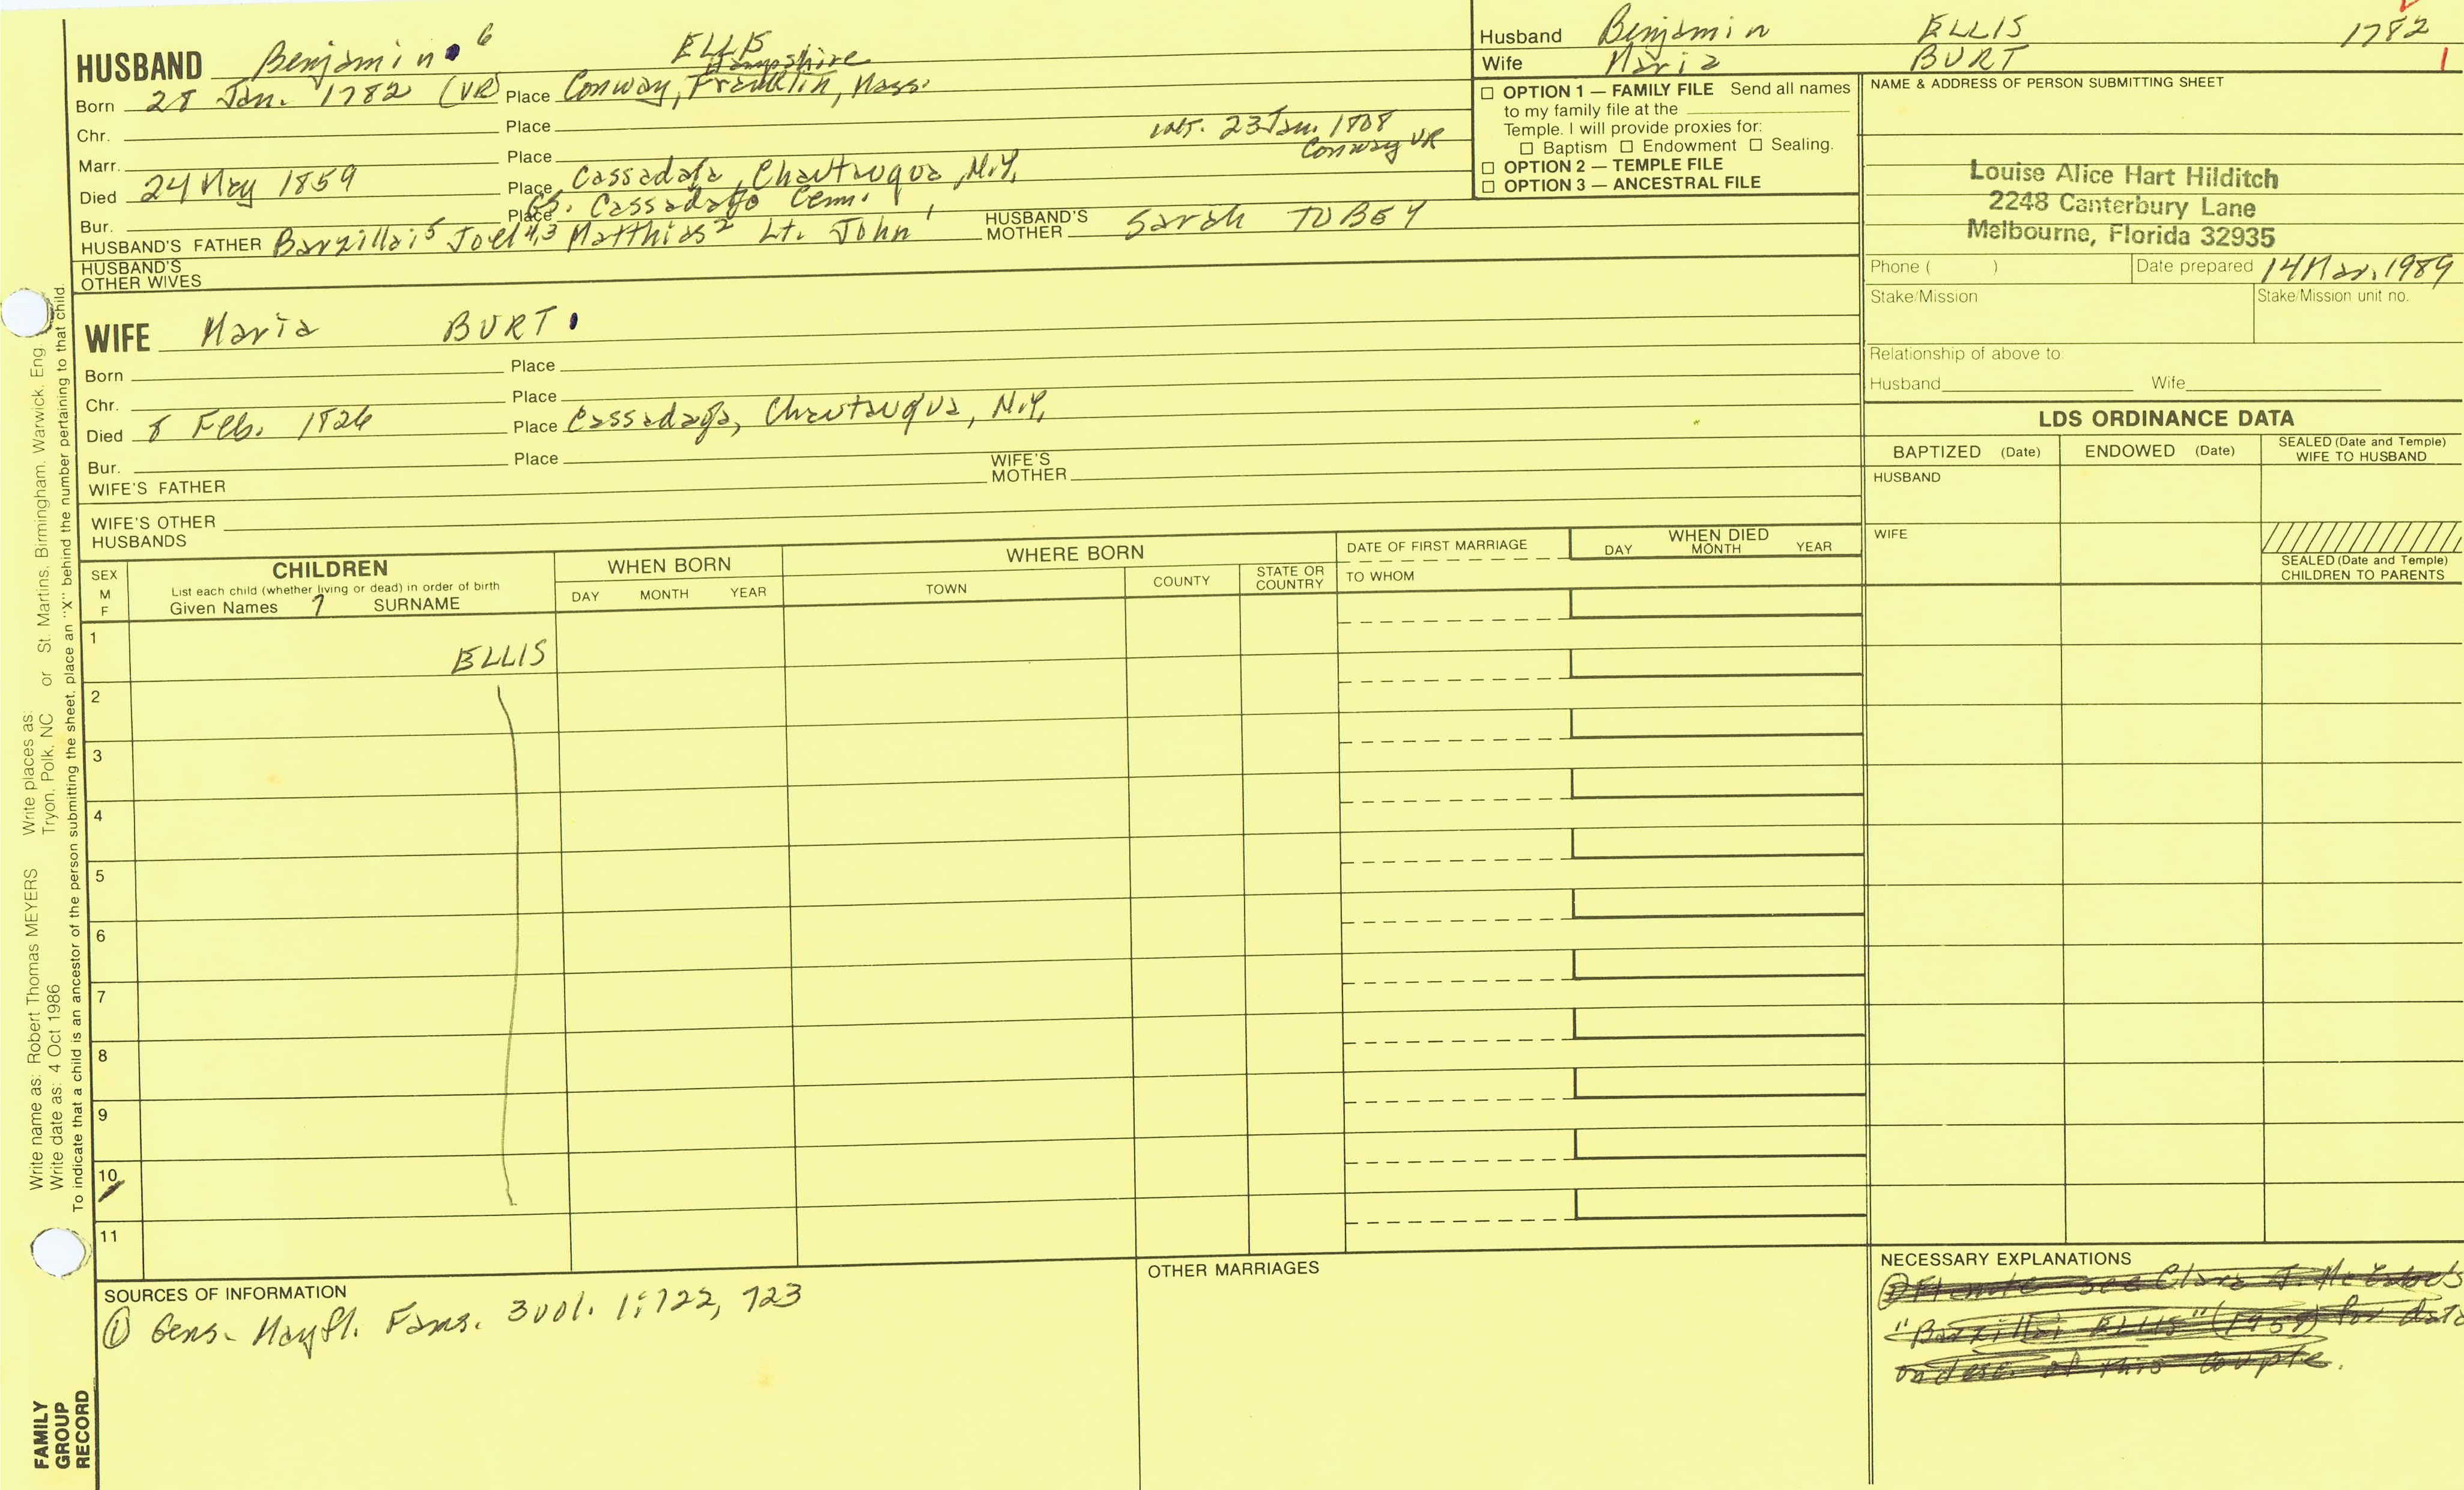 HUSBAND Benjamin 6 ELLIS
Hampshire
Born 28 Jan. 1782 (VR) Place Conway, Franklin, Mass.
Chr. Place
int. 23 Jan. 1808
Marr. Place Conway VR
Died 24 May 1859 Place Cassadaga, Chautauqua, N.Y.
Bur. Place GS. Cassadaga Cem.
HUSBAND'S FATHER Barzillai 5 Joel 4,3 Matthias 2 Lt. John 1 HUSBAND'S MOTHER Sarah TOBEY
HUSBAND'S OTHER WIVES
WIFE Maria BURT
Born Place
Chr. Place
Died 8 Feb. 1826 Place Cassadaga, Chautauqua, N.Y.
Bur. Place
WIFE'S FATHER WIFE'S MOTHER
WIFE'S OTHER HUSBANDS
Husband Benjamin ELLIS 1782
Wife Maria BURT 1
☐ OPTION 1 — FAMILY FILE Send all names
to my family file at the
Temple. I will provide proxies for:
☐ Baptism ☐ Endowment ☐ Sealing.
☐ OPTION 2 — TEMPLE FILE
☐ OPTION 3 — ANCESTRAL FILE
NAME & ADDRESS OF PERSON SUBMITTING SHEET
Louise Alice Hart Hilditch
2248 Canterbury Lane
Melbourne, Florida 32935
Phone ( ) Date prepared 14 Mar. 1989
Stake/Mission Stake/Mission unit no.
Relationship of above to:
Husband Wife
LDS ORDINANCE DATA
BAPTIZED (Date) ENDOWED (Date) SEALED (Date and Temple) WIFE TO HUSBAND
HUSBAND
WIFE
SEALED (Date and Temple) CHILDREN TO PARENTS
SEX M F
CHILDREN
List each child (whether living or dead) in order of birth
Given Names 7 SURNAME
WHEN BORN
DAY MONTH YEAR
WHERE BORN
TOWN COUNTY STATE OR COUNTRY
DATE OF FIRST MARRIAGE
TO WHOM
WHEN DIED
DAY MONTH YEAR
1 ELLIS
2
3
4
5
6
7
8
9
10
11
SOURCES OF INFORMATION
① Gens. Mayfl. Fams. 3 vol. 1:722, 723
OTHER MARRIAGES
NECESSARY EXPLANATIONS
see Clara J.
"Barzillai ELLIS" (1959) for data
on desc. of this couple.
Write name as: Robert Thomas MEYERS Write places as: St. Martins, Birmingham, Warwick, Eng
Write date as: 4 Oct 1986 Tryon, Polk, NC or
To indicate that a child is an ancestor of the person submitting the sheet, place an "X" behind the number pertaining to that child.
FAMILY
GROUP
RECORD